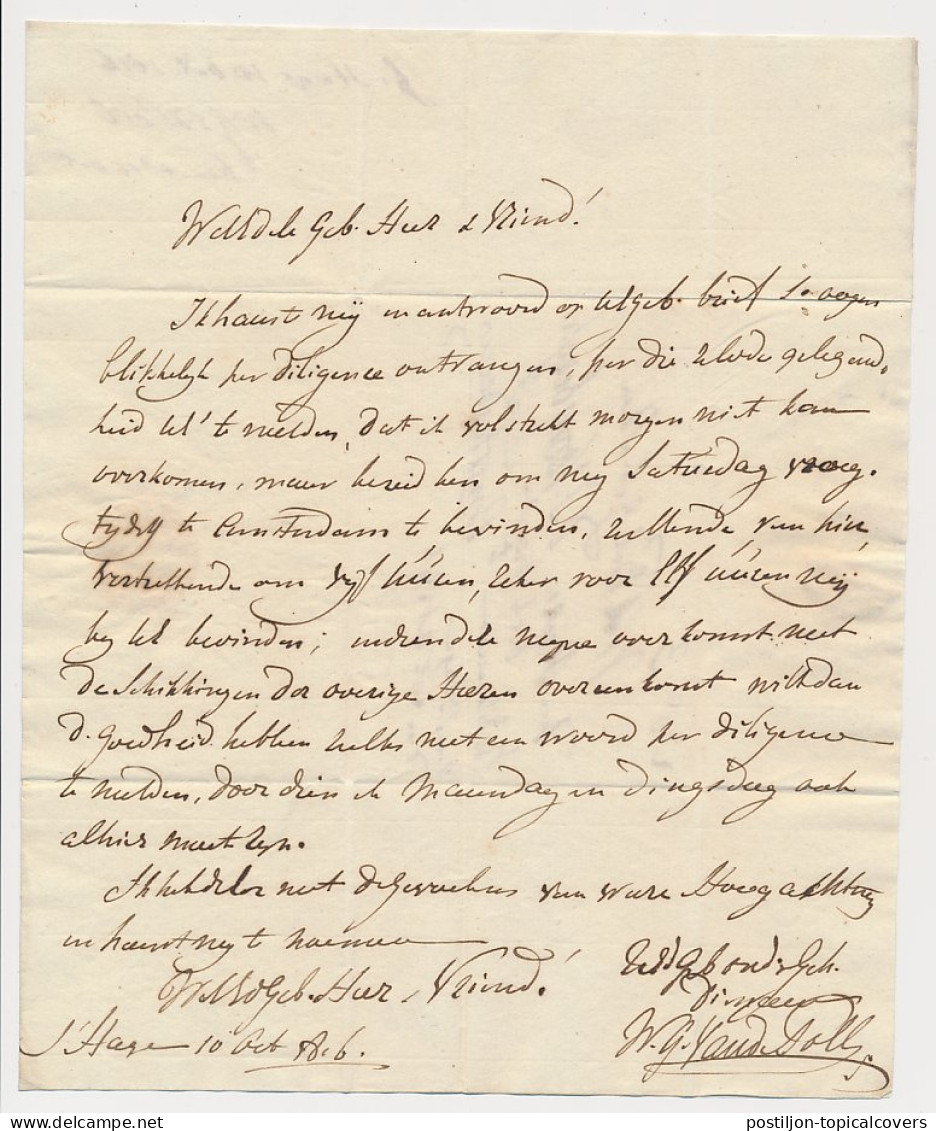 WelEdele Geb. Heer & Vriend!
Ik haast mij in antwoord op UEGeb. brief zo oogen
blikkelyk per diligence ontvangen, per die zelvde gelegend
heid UE te melden, dat ik volstrekt morgen niet kan
overkomen, maar bereid ben om mij Saturdag vroeg
tydig te Amsterdam te bevinden, zullende van hier
vertrekkende om vyf Uuren, zeker voor Elf uuren mij
by UE bevinden; indien de myne overkomst met
de Schikkingen der overige Heeren overeenkomt wilt dan
d. goedheid hebben zulks met een woord per diligence
te melden, door dien ik Maandag en Dingsdag ook
alhier moet zyn.
Ik heb de Eer met de Gevoelens van ware Hoogachting
en haast my te noemen
WelEdGeb. Heer & Vriend!
UEdGeb ondr Geh.
Dienaar
S' Hage 10 Oct 1806.
W. G. Vande Poll
postiljon-topicalcovers